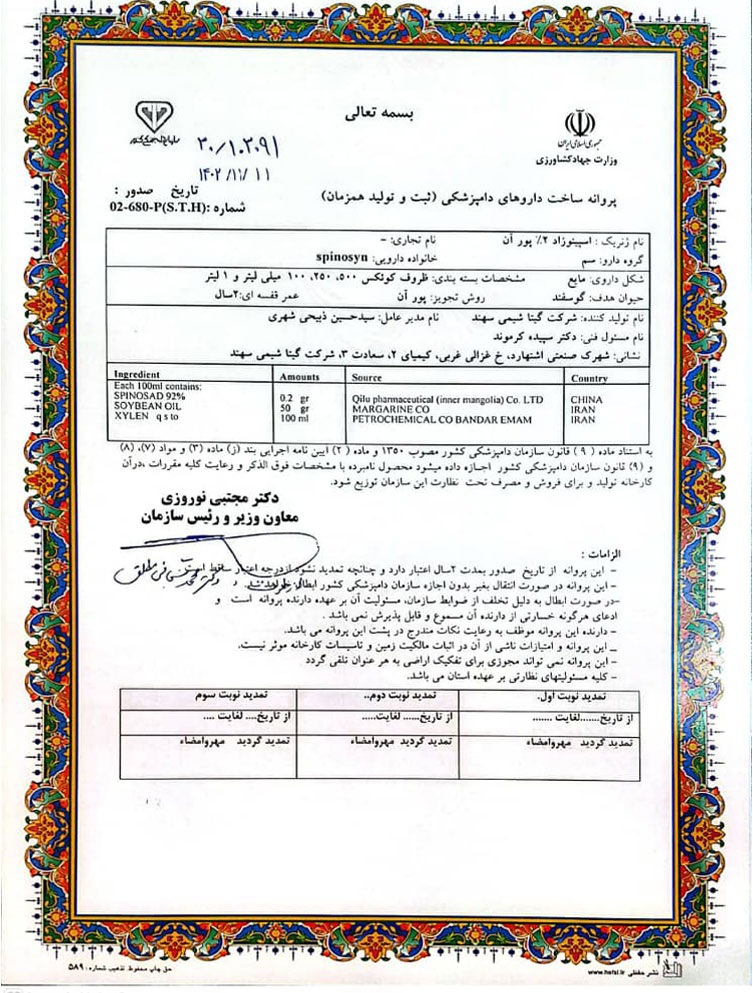 بسمه تعالی
جمهوری اسلامی ایران
وزارت جهادکشاورزی
۳۰/۱۰۳۰۹۱
۱۴۰۲/۱۱/۱۱
تاریخ صدور :
شماره :02-680-P(S.T.H)
پروانه ساخت داروهای دامپزشکی (ثبت و تولید همزمان)
نام ژنریک : اسپینوزاد ۲٪ پور آن نام تجاری: -
گروه دارو: سم خانواده دارویی: spinosyn
شکل داروی: مایع مشخصات بسته بندی: ظروف کوئکس ۵۰۰، ۲۵۰، ۱۰۰ میلی لیتر و ۱ لیتر
حیوان هدف: گوسفند روش تجویز: پور آن عمر قفسه ای:۲سال
نام تولید کننده: شرکت گیتا شیمی سهند نام مدیر عامل: سیدحسین ذبیحی شهری
نام مسئول فنی: دکتر سپیده کرموند
نشانی: شهرک صنعتی اشتهارد، خ غزالی غربی، کیمیای ۲، سعادت ۳، شرکت گیتا شیمی سهند
Ingredient Amounts Source Country
Each 100ml contains:
SPINOSAD 92% 0.2 gr Qilu pharmaceutical (inner mangolia) Co. LTD CHINA
SOYBEAN OIL 50 gr MARGARINE CO IRAN
XYLEN q s to 100 ml PETROCHEMICAL CO BANDAR EMAM IRAN
به استناد ماده ( ۹ ) قانون سازمان دامپزشکی کشور مصوب ۱۳۵۰ و ماده ( ۲ ) آیین نامه اجرایی بند (ز) ماده (۳) و مواد (۷)، (۸)
و (۹) قانون سازمان دامپزشکی کشور اجازه داده میشود محصول نامبرده با مشخصات فوق الذکر و رعایت کلیه مقررات ،درآن
کارخانه تولید و برای فروش و مصرف تحت نظارت این سازمان توزیع شود.
دکتر مجتبی نوروزی
معاون وزیر و رئیس سازمان
الزامات :
- این پروانه از تاریخ صدور بمدت ۲سال اعتبار دارد و چنانچه تمدید نشود ازدرجه اعتبار ساقط است
- این پروانه در صورت انتقال بغیر بدون اجازه سازمان دامپزشکی کشور ابطال و
-در صورت ابطال به دلیل تخلف از ضوابط سازمان، مسئولیت آن بر عهده دارنده پروانه است و
ادعای هرگونه خسارتی از دارنده آن مسموع و قابل پذیرش نمی باشد .
- دارنده این پروانه موظف به رعایت نکات مندرج در پشت این پروانه می باشد.
_ این پروانه و امتیازات ناشی از آن در اثبات مالکیت زمین و تاسیسات کارخانه موثر نیست.
- این پروانه نمی تواند مجوزی برای تفکیک اراضی به هر عنوان تلقی گردد
- کلیه مسئولیتهای نظارتی بر عهده استان می باشد.
تمدید نوبت اول. تمدید نوبت دوم.. تمدید نوبت سوم
از تاریخ.......لغایت ....... از تاریخ...... لغایت..... از تاریخ.... لغایت ....
تمدید گردید مهروامضاء تمدید گردید مهروامضاء تمدید گردید مهروامضاء
نشر حفظی www.hefzi.ir
حق چاپ محفوظ تذهیب شماره: ۵۸۹